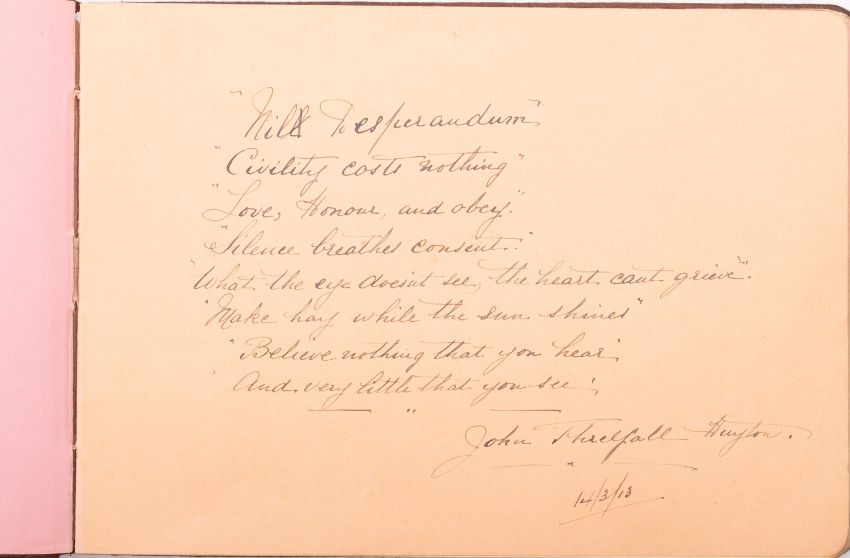 "Nil Desperandum"
"Civility costs nothing"
"Love, Honour, and obey."
"Silence breathes consent."
"What the eye doesnt see, the heart cant grieve".
"Make hay while the sun shines"
"Believe nothing that you hear,
And very little that you see",
John Threlfall Huyton.
14/3/13